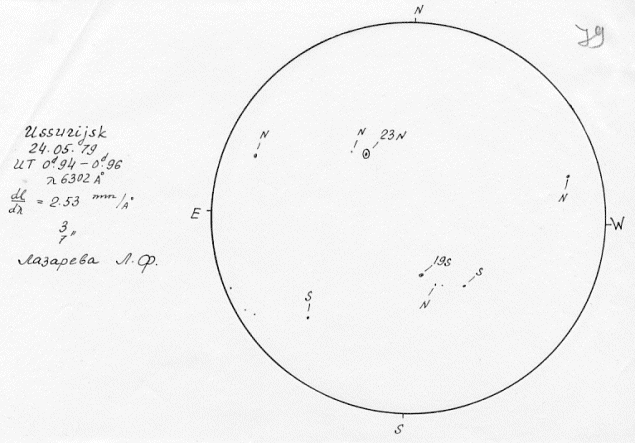 N
79
Ussurijsk
24.05.79
UT 0ᵈ.94 – 0ᵈ.96
λ 6302 Å
dl/dλ = 2.53 mm/Å
3
7"
Лазарева Л.Ф.
N
N
23N
N
E
W
19S
S
N
S
S